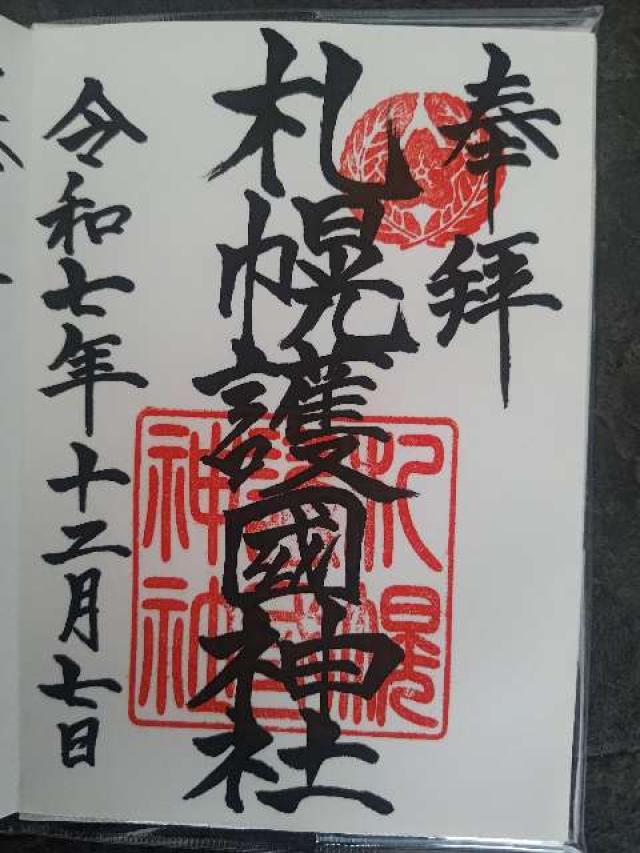 奉拝
札幌護國神社
札幌
護國
神社
令和七年十二月七日